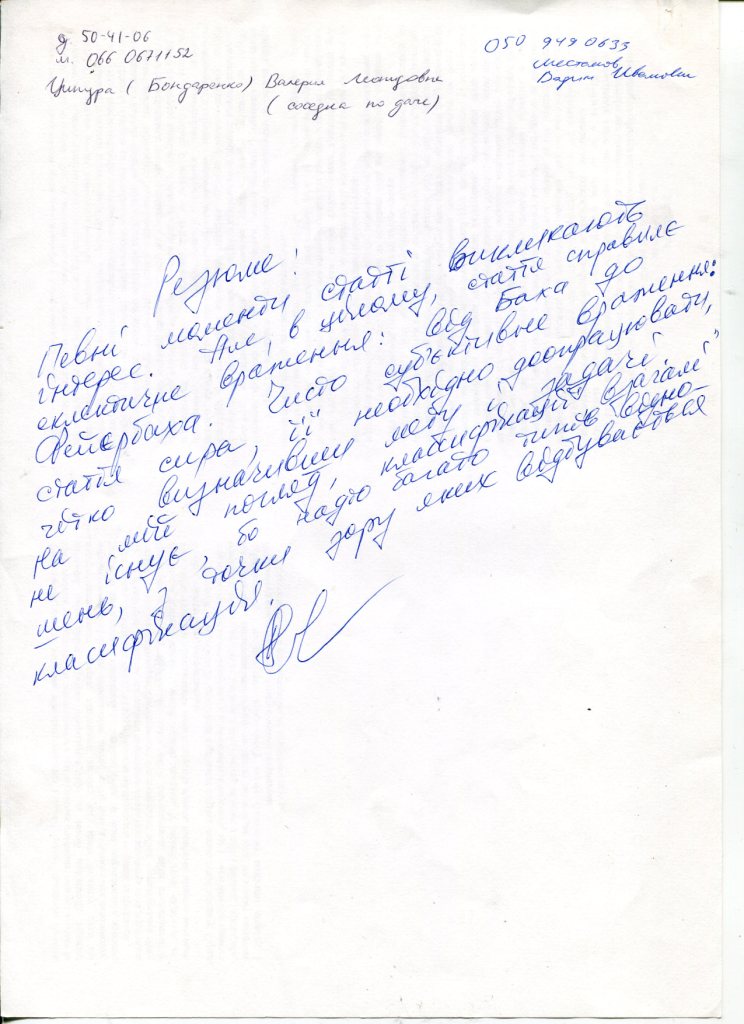 д 50-41-06
м. 066 0671152
Ципура ( Бондаренко) Валерия Леонидовна
( соседка по даче)
050 949 0633
Вадим Иванович
Резюме!
Певні моменти статті викликають
інтерес. Але, в цілому, стаття справляє
еклектичне враження: від Баха до
Фейєрбаха. Чисто суб'єктивне враження:
стаття сира, її необхідно доопрацювати,
чітко визначивши мету і задачі.
На мій погляд, класифікації взагалі
не існує, бо надто багато типів відно-
шень, з точки зору яких відбувається
класифікація.